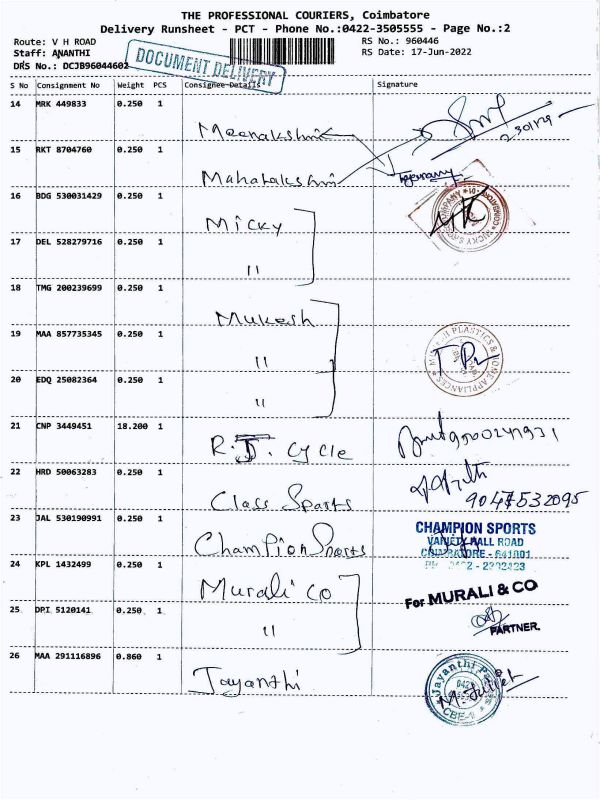 THE PROFESSIONAL COURIERS, Coimbatore
Delivery Runsheet - PCT - Phone No.:0422-3505555 - Page No.:2
Route: V H ROAD
RS No.: 960446
Staff: ANANTHI
RS Date: 17-Jun-2022
DRS No.: DCJB96044602
DOCUMENT DELIVERY
S No Consignment No Weight PCS Consignee Details Signature
14 MRK 449833 0.250 1
Meenakshi
15 RKT 8704760 0.250 1
Mahalakshmi
16 BDG 530031429 0.250 1
Micky
17 DEL 528279716 0.250 1
"
18 TMG 200239699 0.250 1
Mukesh
19 MAA 857735345 0.250 1
"
20 EDQ 25082364 0.250 1
"
21 CNP 3449451 18.200 1
R.J. Cycle
22 HRD 50063283 0.250 1
Class Sports
9047532095
23 JAL 530190991 0.250 1
Champion Sports
CHAMPION SPORTS
VARIETY HALL ROAD
COIMBATORE - 641001
24 KPL 1432499 0.250 1
Murali Co
For MURALI & CO
25 DPI 5120141 0.250 1
"
PARTNER.
26 MAA 291116896 0.860 1
Jayanthi